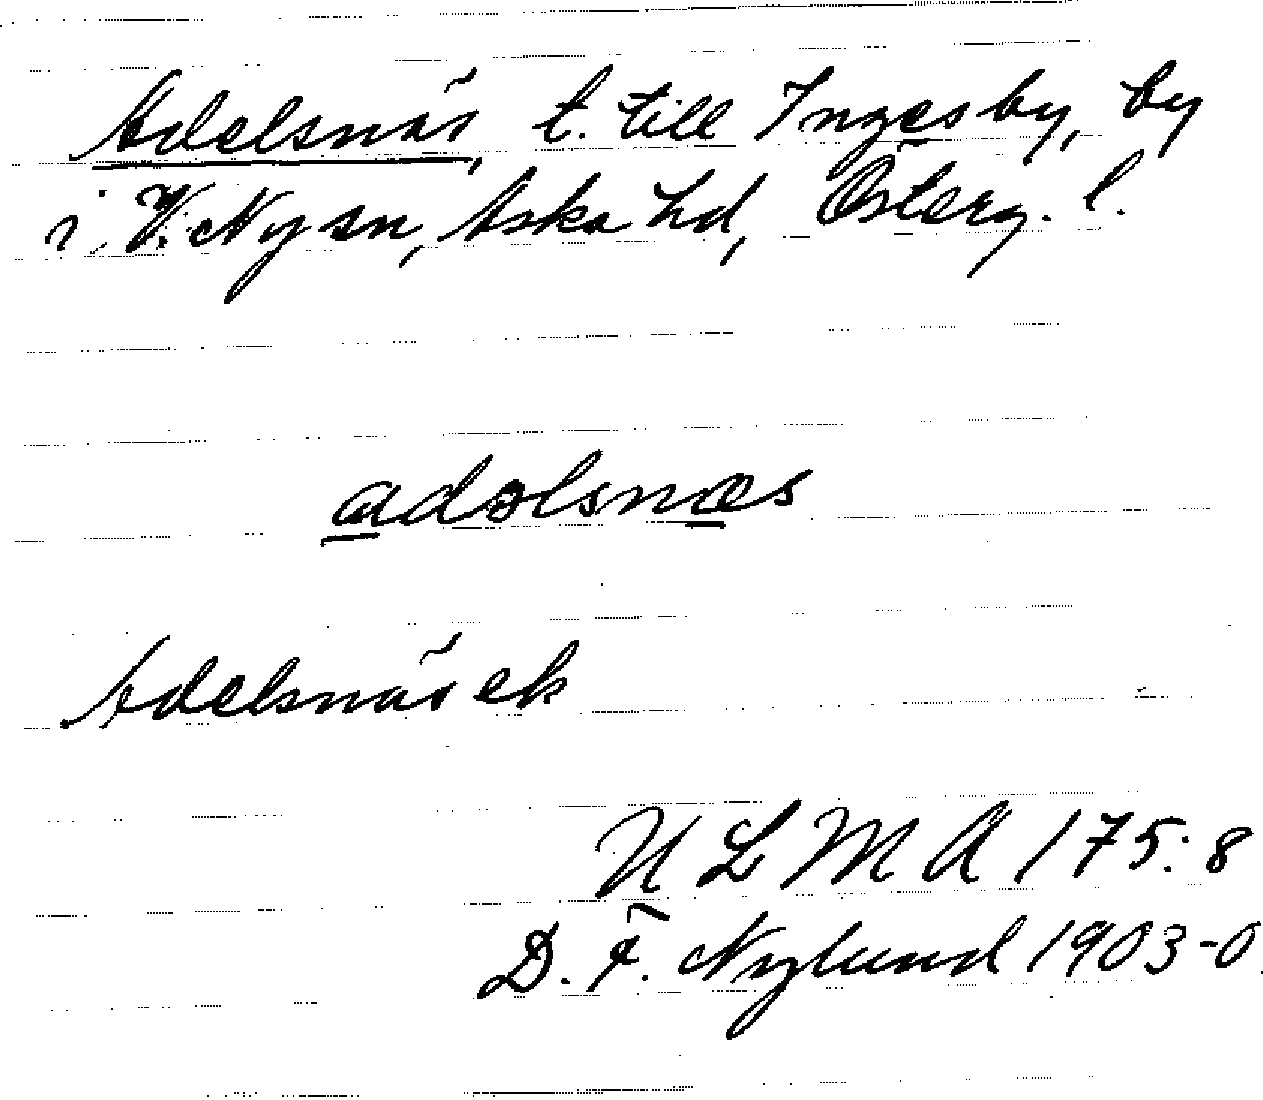 Adelsnäs, t. till Ingesby, by
i V. Ny sn, Aska hd, Österg. l.
adəlsnæs
Adelsnäs ek
ULMA 175:8
D. F. Nylund 1903-0